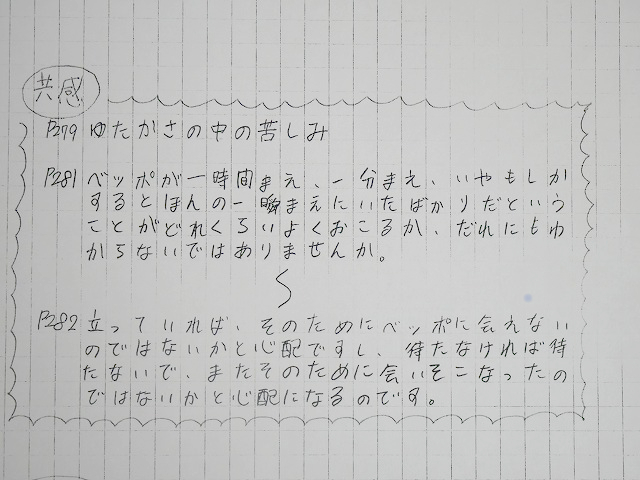 共感
P279 ゆたかさの中の苦しみ
P281 ベッポが一時間まえ、一分まえ、いやもしか
するとほんの一瞬まえにいたばかりだという
ことがどれくらいよくおこるか、だれにもわ
からないではありませんか。
P282 立っていれば、そのためにベッポに会えない
のではないかと心配ですし、待たなければ待
たないで、またそのために会いそこなったの
ではないかと心配になるのです。